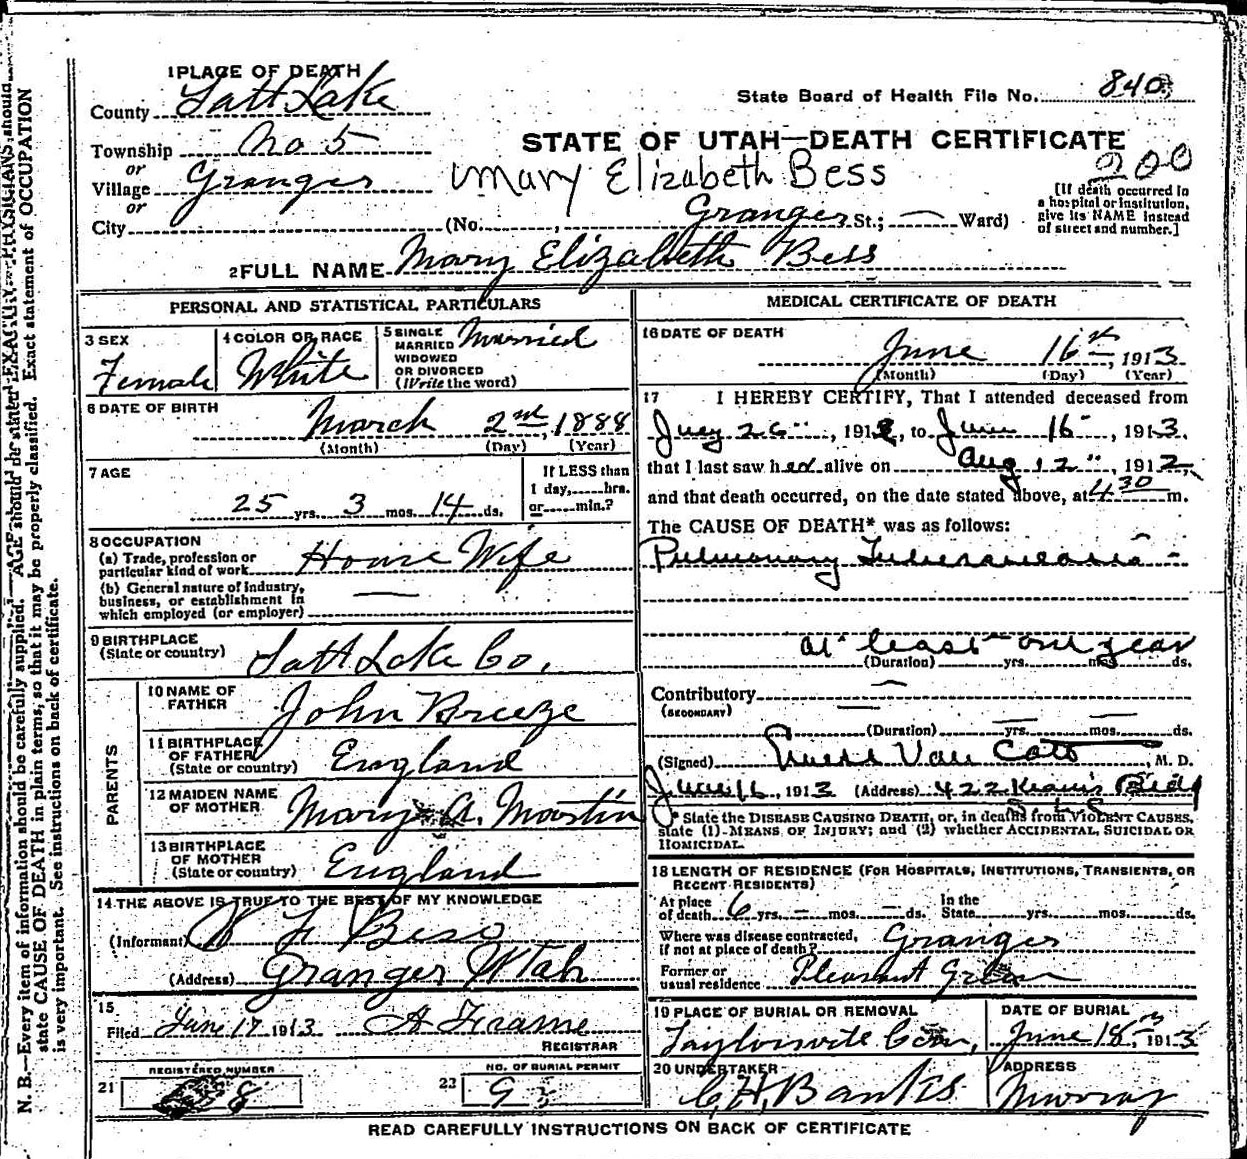 1 PLACE OF DEATH
County Salt Lake
State Board of Health File No. 840
Township No 5
STATE OF UTAH—DEATH CERTIFICATE
or
Village Granger
Mary Elizabeth Bess
200
or
City (No. , Granger St.; — Ward)
[If death occurred in
a hospital or institution,
give its NAME instead
of street and number.]
2 FULL NAME Mary Elizabeth Bess
PERSONAL AND STATISTICAL PARTICULARS
3 SEX
Female
4 COLOR OR RACE
White
5 SINGLE
MARRIED
WIDOWED
OR DIVORCED
(Write the word)
Married
6 DATE OF BIRTH
March 2nd, 1888
(Month) (Day) (Year)
7 AGE
25 yrs. 3 mos. 14 ds.
If LESS than
1 day, hrs.
or min.?
8 OCCUPATION
(a) Trade, profession or
particular kind of work House Wife
(b) General nature of industry,
business, or establishment in
which employed (or employer) —
9 BIRTHPLACE
(State or country) Salt Lake Co.
PARENTS
10 NAME OF
FATHER John Breeze
11 BIRTHPLACE
OF FATHER
(State or country) England
12 MAIDEN NAME
OF MOTHER Mary A. Martin
13 BIRTHPLACE
OF MOTHER
(State or country) England
14 THE ABOVE IS TRUE TO THE BEST OF MY KNOWLEDGE
(Informant) F Bess
(Address) Granger Utah
15
Filed June 17 1913 A Frame
REGISTRAR
REGISTERED NUMBER
21 8
NO. OF BURIAL PERMIT
23 93
MEDICAL CERTIFICATE OF DEATH
16 DATE OF DEATH
June 16th, 1913
(Month) (Day) (Year)
17 I HEREBY CERTIFY, That I attended deceased from
July 26", 1912, to June 16, 1913,
that I last saw her alive on Aug 12", 1912,
and that death occurred, on the date stated above, at 4 30 m.
The CAUSE OF DEATH* was as follows:
Pulmonary Tuberculosis -
at least one year
(Duration) yrs. mos. ds.
Contributory —
(SECONDARY)
(Duration) — yrs. — mos. ds.
(Signed) Van Cott, M. D.
June 16, 1913 (Address) 422 Kearns Bldg
S. L. C.
* State the DISEASE CAUSING DEATH, or, in deaths from VIOLENT CAUSES,
state (1) MEANS OF INJURY; and (2) whether ACCIDENTAL, SUICIDAL OR
HOMICIDAL.
18 LENGTH OF RESIDENCE (FOR HOSPITALS, INSTITUTIONS, TRANSIENTS, OR
RECENT RESIDENTS)
At place
of death 6 yrs. — mos. — ds.
In the
State yrs. mos. ds.
Where was disease contracted,
if not at place of death? Granger
Former or
usual residence Pleasant Green
19 PLACE OF BURIAL OR REMOVAL
Taylorsville Cem,
DATE OF BURIAL
June 18th, 1913
20 UNDERTAKER
C. H. Banks
ADDRESS
Murray
READ CAREFULLY INSTRUCTIONS ON BACK OF CERTIFICATE
N. B.—Every item of information should be carefully supplied. AGE should be stated EXACTLY. PHYSICIANS should
state CAUSE OF DEATH in plain terms, so that it may be properly classified. Exact statement of OCCUPATION
is very important. See instructions on back of certificate.